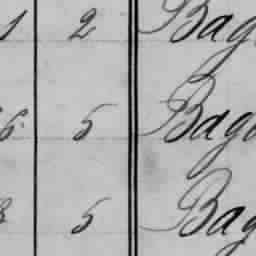 1 2 Bag
6 5 Bag
3 5 Bag